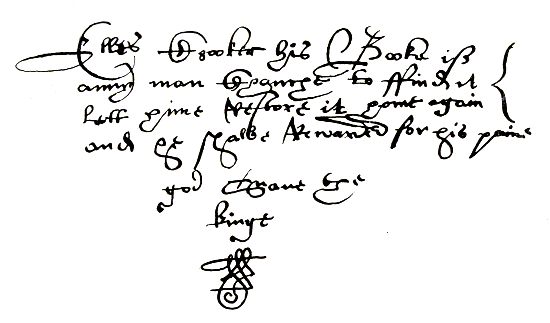 Elles Crooker his Booke iff
anny man Chaunche to ffind it
Lett hime Restore it home again
and he shalbe Rewarded for his paine
god Save the
kinge